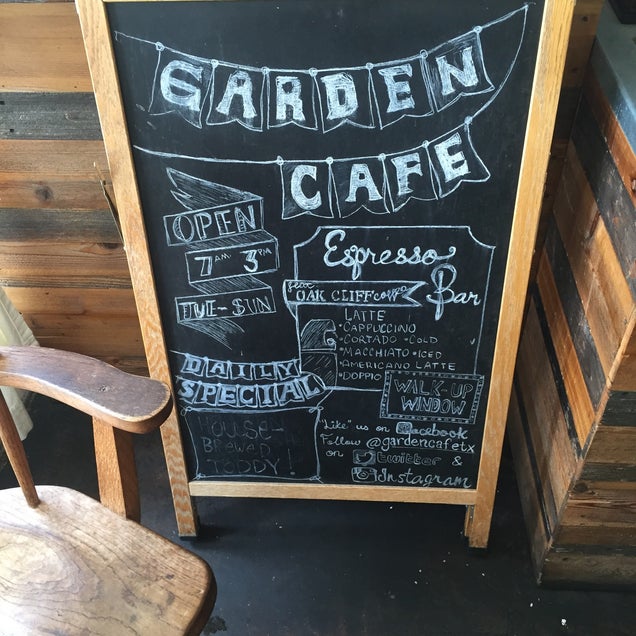 GARDEN
CAFE
OPEN
7AM 3PM
TUE-SUN
Espresso
Bar
feat. OAK CLIFF
LATTE
•CAPPUCCINO
•CORTADO •COLD
•MACCHIATO •ICED
•AMERICANO LATTE
•DOPPIO
WALK-UP
WINDOW
DAILY
SPECIAL
HOUSE-
BREWED
TODDY!
"Like" us on facebook
Follow @gardencafetx
on twitter &
Instagram